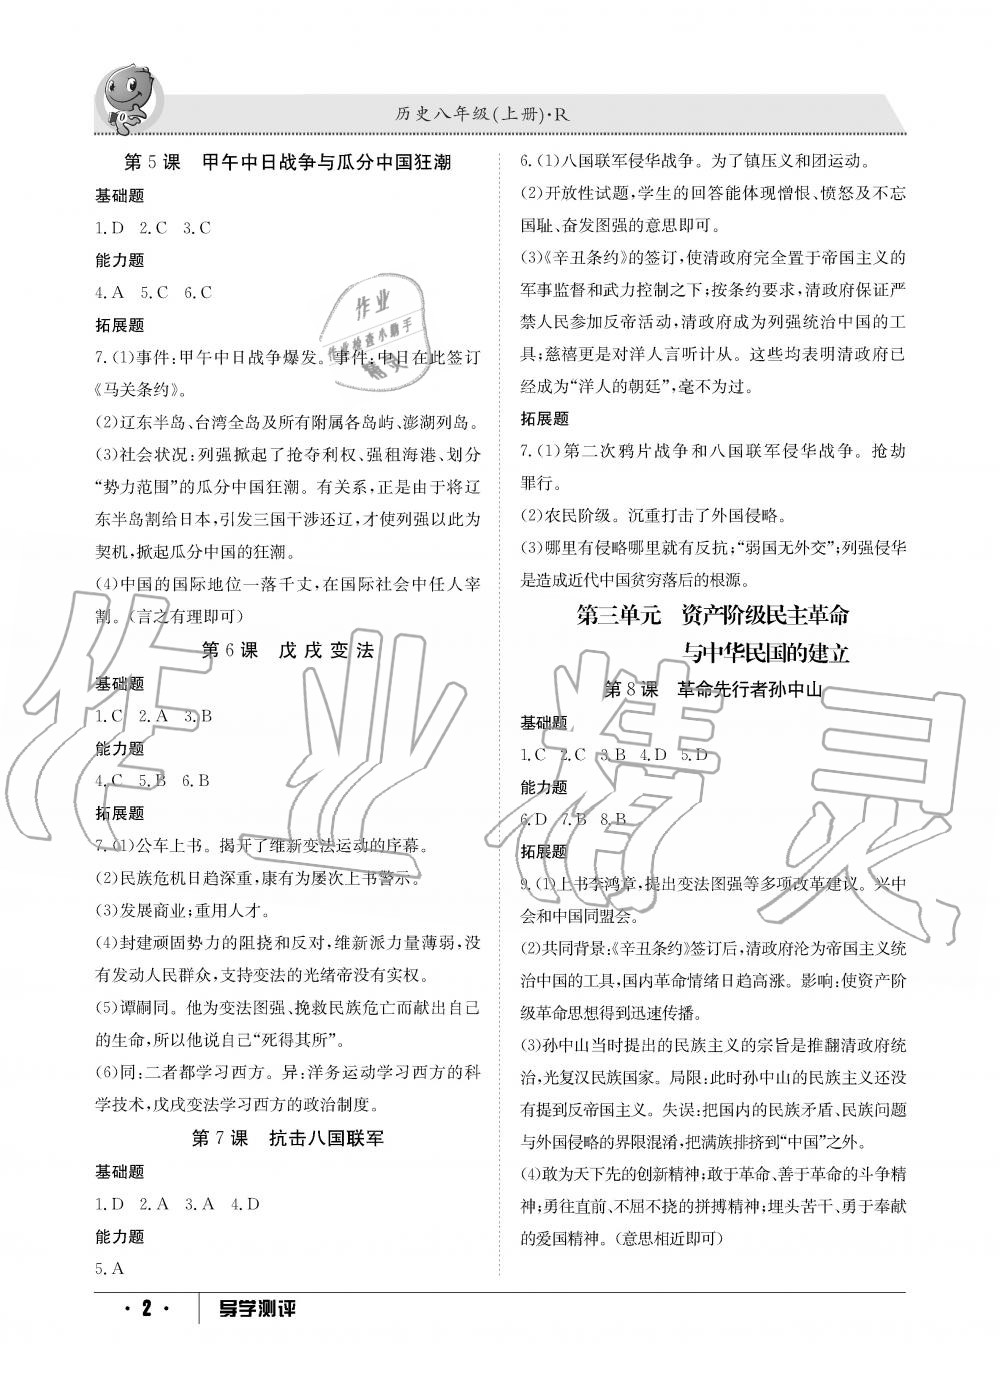 历史八年级(上册)·R
第5课 甲午中日战争与瓜分中国狂潮
基础题
1.D 2.C 3.C
能力题
4.A 5.C 6.C
拓展题
7.(1)事件:甲午中日战争爆发。事件:中日在此签订
《马关条约》。
(2)辽东半岛、台湾全岛及所有附属各岛屿、澎湖列岛。
(3)社会状况:列强掀起了抢夺利权、强租海港、划分
“势力范围”的瓜分中国狂潮。有关系,正是由于将辽
东半岛割给日本,引发三国干涉还辽,才使列强以此为
契机,掀起瓜分中国的狂潮。
(4)中国的国际地位一落千丈,在国际社会中任人宰
割。(言之有理即可)
第6课 戊戌变法
基础题
1.C 2.A 3.B
能力题
4.C 5.B 6.B
拓展题
7.(1)公车上书。揭开了维新变法运动的序幕。
(2)民族危机日趋深重,康有为屡次上书警示。
(3)发展商业;重用人才。
(4)封建顽固势力的阻挠和反对,维新派力量薄弱,没
有发动人民群众,支持变法的光绪帝没有实权。
(5)谭嗣同。他为变法图强、挽救民族危亡而献出自己
的生命,所以他说自己“死得其所”。
(6)同:二者都学习西方。异:洋务运动学习西方的科
学技术,戊戌变法学习西方的政治制度。
第7课 抗击八国联军
基础题
1.D 2.A 3.A 4.D
能力题
5.A
6.(1)八国联军侵华战争。为了镇压义和团运动。
(2)开放性试题,学生的回答能体现憎恨、愤怒及不忘
国耻、奋发图强的意思即可。
(3)《辛丑条约》的签订,使清政府完全置于帝国主义的
军事监督和武力控制之下;按条约要求,清政府保证严
禁人民参加反帝活动,清政府成为列强统治中国的工
具;慈禧更是对洋人言听计从。这些均表明清政府已
经成为“洋人的朝廷”,毫不为过。
拓展题
7.(1)第二次鸦片战争和八国联军侵华战争。抢劫
罪行。
(2)农民阶级。沉重打击了外国侵略。
(3)哪里有侵略哪里就有反抗;“弱国无外交”;列强侵华
是造成近代中国贫穷落后的根源。
第三单元 资产阶级民主革命
与中华民国的建立
第8课 革命先行者孙中山
基础题
1.C 2.C 3.B 4.D 5.D
能力题
6.D 7.B 8.B
拓展题
9.(1)上书李鸿章,提出变法图强等多项改革建议。兴中
会和中国同盟会。
(2)共同背景:《辛丑条约》签订后,清政府沦为帝国主义统
治中国的工具,国内革命情绪日趋高涨。影响:使资产阶
级革命思想得到迅速传播。
(3)孙中山当时提出的民族主义的宗旨是推翻清政府统
治,光复汉民族国家。局限:此时孙中山的民族主义还没
有提到反帝国主义。失误:把国内的民族矛盾、民族问题
与外国侵略的界限混淆,把满族排挤到“中国”之外。
(4)敢为天下先的创新精神;敢于革命、善于革命的斗争精
神;勇往直前、不屈不挠的拼搏精神;埋头苦干、勇于奉献
的爱国精神。(意思相近即可)
·2· 导学测评
作业
作业检查小助手
精灵
作业精灵